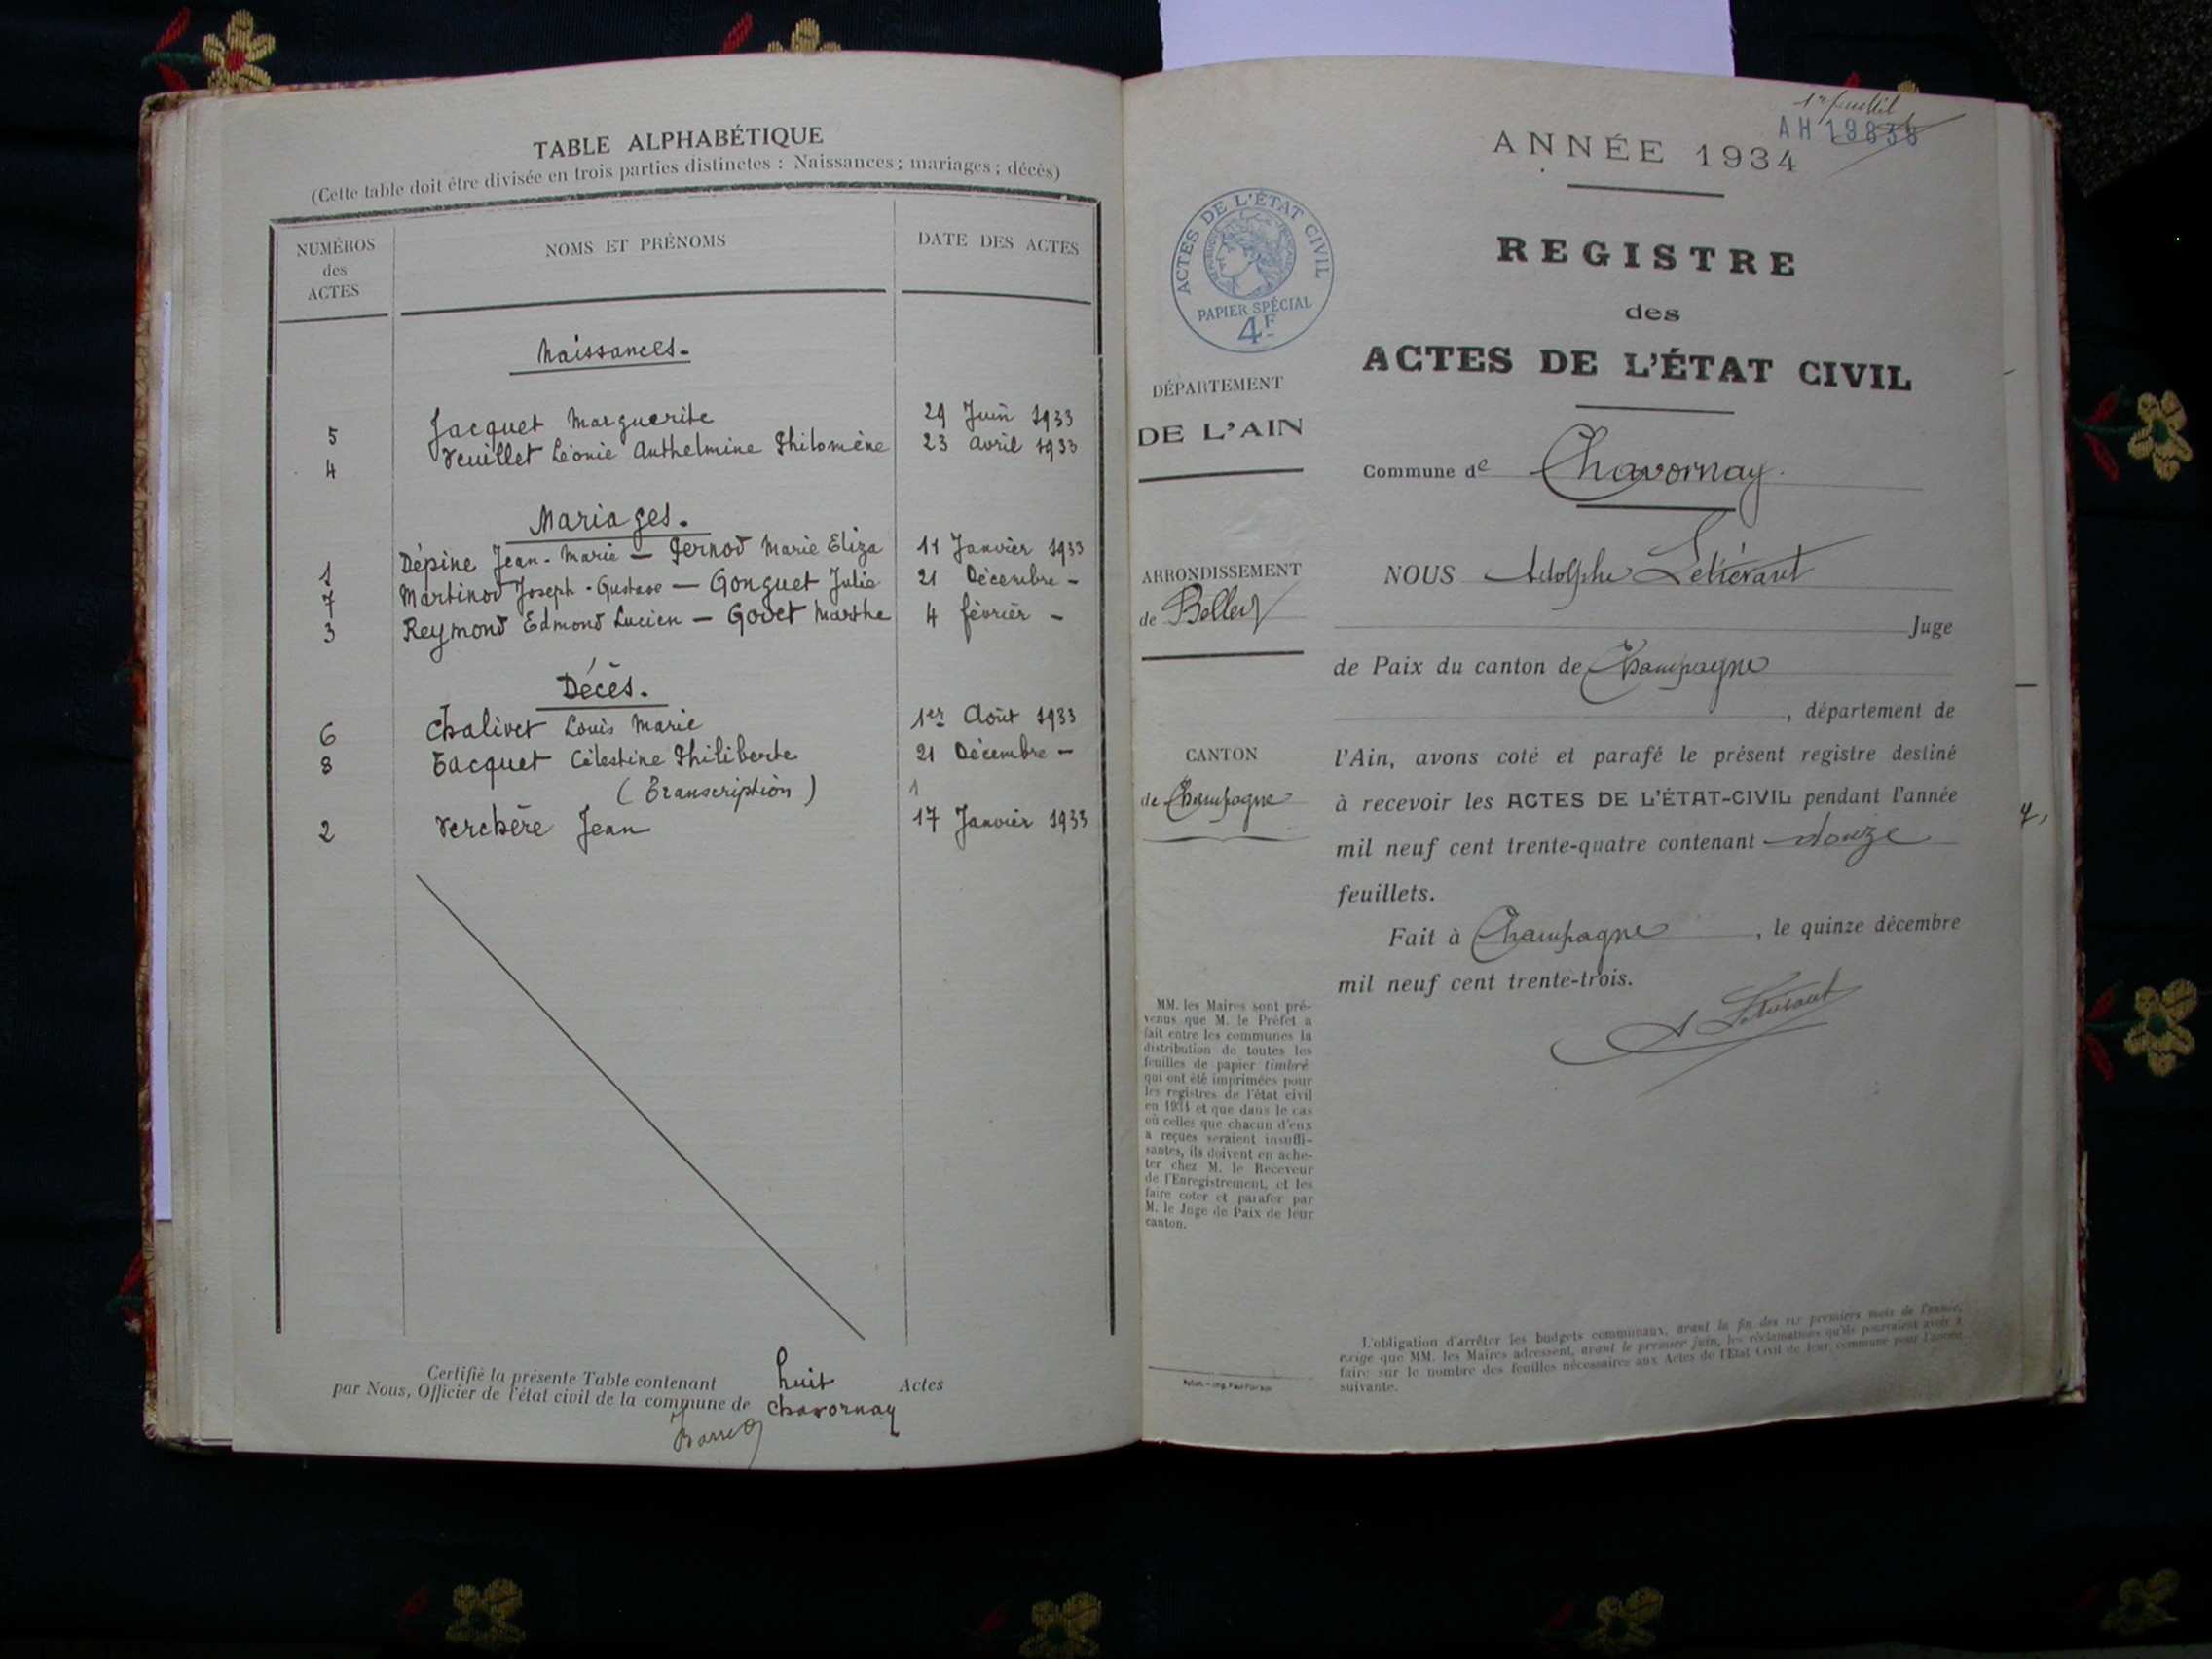 TABLE ALPHABÉTIQUE
(Cette table doit être divisée en trois parties distinctes : Naissances ; mariages ; décès)
NUMÉROS
des
ACTES
NOMS ET PRÉNOMS
DATE DES ACTES
Naissances.
5 Jacquet Marguerite 29 Juin 1933
4 Veuillet Léonie Anthelmine Philomène 23 Avril 1933
Mariages.
1 Dépine Jean-Marie — Pernod Marie Eliza 11 Janvier 1933
7 Martinod Joseph-Gustave — Gonguet Julie 21 Décembre -
3 Reymond Edmond Lucien — Godet Marthe 4 février -
Décès.
6 Chalivet Louis Marie 1er Août 1933
8 Tacquet Célestine Philiberte 21 Décembre -
(Transcription)
2 Verchère Jean 17 Janvier 1933
Certifié la présente Table contenant huit Actes
par Nous, Officier de l'état civil de la commune de Chavornay
1er feuillet
AH 19838
ANNÉE 1934
ACTES DE L'ÉTAT CIVIL
RÉPUBLIQUE FRANÇAISE
PAPIER SPÉCIAL
4F
REGISTRE
des
ACTES DE L'ÉTAT CIVIL
DÉPARTEMENT
DE L'AIN
Commune de Chavornay.
ARRONDISSEMENT
de Belley
NOUS Adolphe
Juge
de Paix du canton de Champagne
, département de
CANTON
de Champagne
l'Ain, avons coté et parafé le présent registre destiné
à recevoir les ACTES DE L'ÉTAT-CIVIL pendant l'année
mil neuf cent trente-quatre contenant douze
feuillets.
Fait à Champagne , le quinze décembre
mil neuf cent trente-trois.
MM. les Maires sont pré-
venus que M. le Préfet a
fait entre les communes la
distribution de toutes les
feuilles de papier timbré
qui ont été imprimées pour
les registres de l'état civil
en 1934 et que dans le cas
où celles que chacun d'eux
a reçues seraient insuffi-
santes, ils doivent en ache-
ter chez M. le Receveur
de l'Enregistrement, et les
faire coter et parafer par
M. le Juge de Paix de leur
canton.
L'obligation d'arrêter les budgets communaux, avant la fin des six premiers mois de l'année,
exige que MM. les Maires adressent, avant le premier juin, les réclamations qu'ils pourraient avoir à
faire sur le nombre des feuilles nécessaires aux Actes de l'Etat Civil de leur commune pour l'année
suivante.